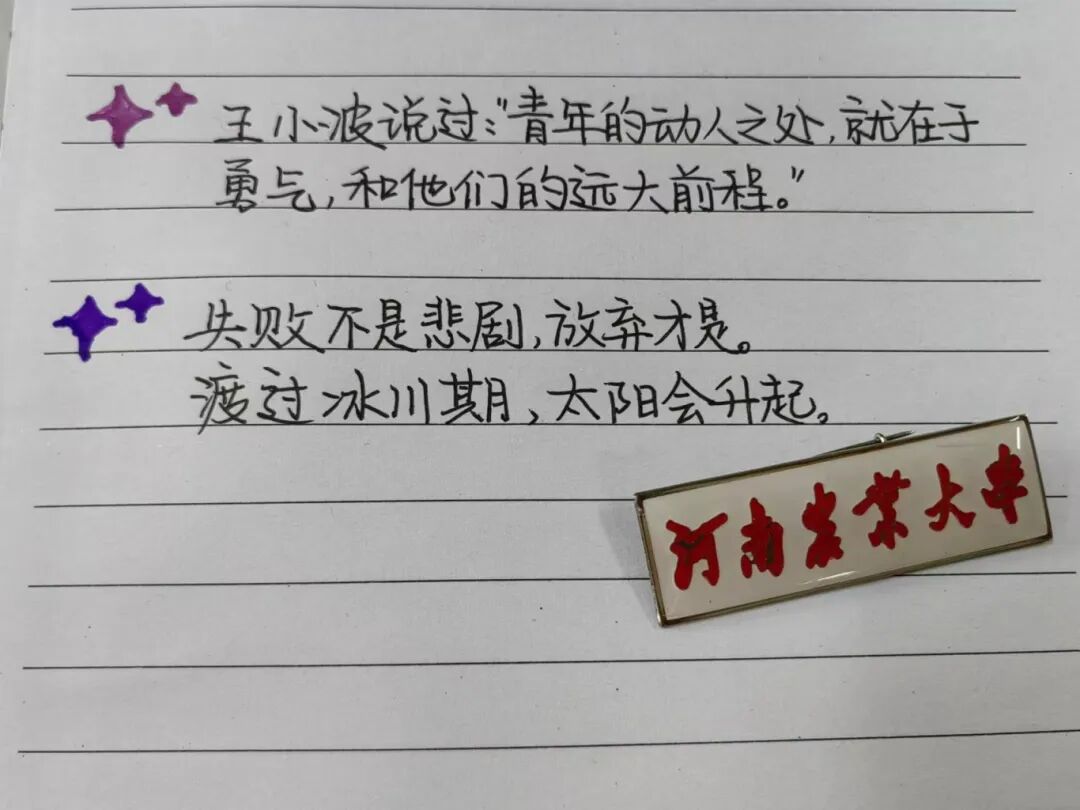 王小波说过:"青年的动人之处,就在于
勇气,和他们的远大前程。"
失败不是悲剧,放弃才是。
渡过冰川期,太阳会升起。
河南农业大学